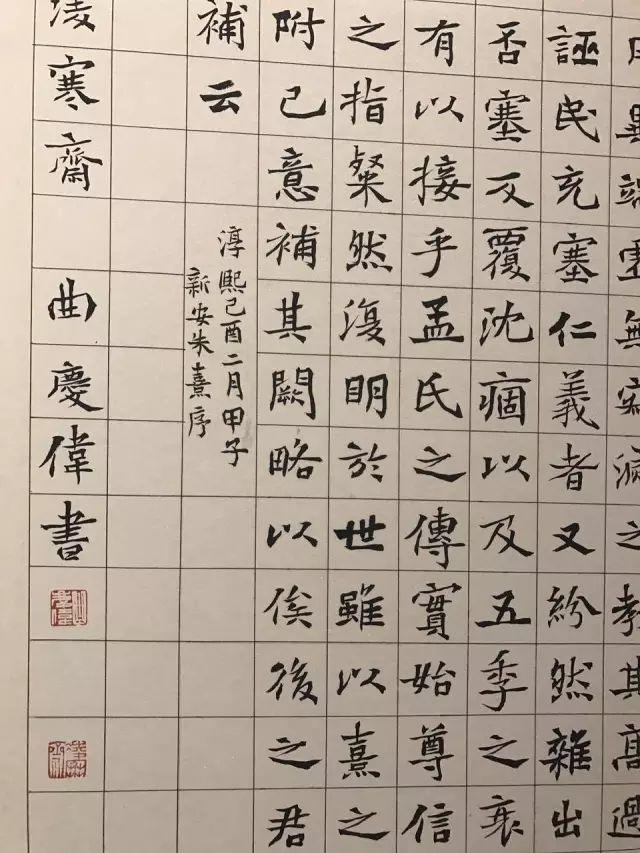 異端虛無寂滅之教其高過
誣民充塞仁義者又紛然雜出
否塞反覆沈痼以及五季之衰
有以接乎孟氏之傳實始尊信
之指粲然復明於世雖以熹之
附己意補其闕略以俟後之君
補云
淳熙己酉二月甲子
新安朱熹序
凌寒齋 曲慶偉書